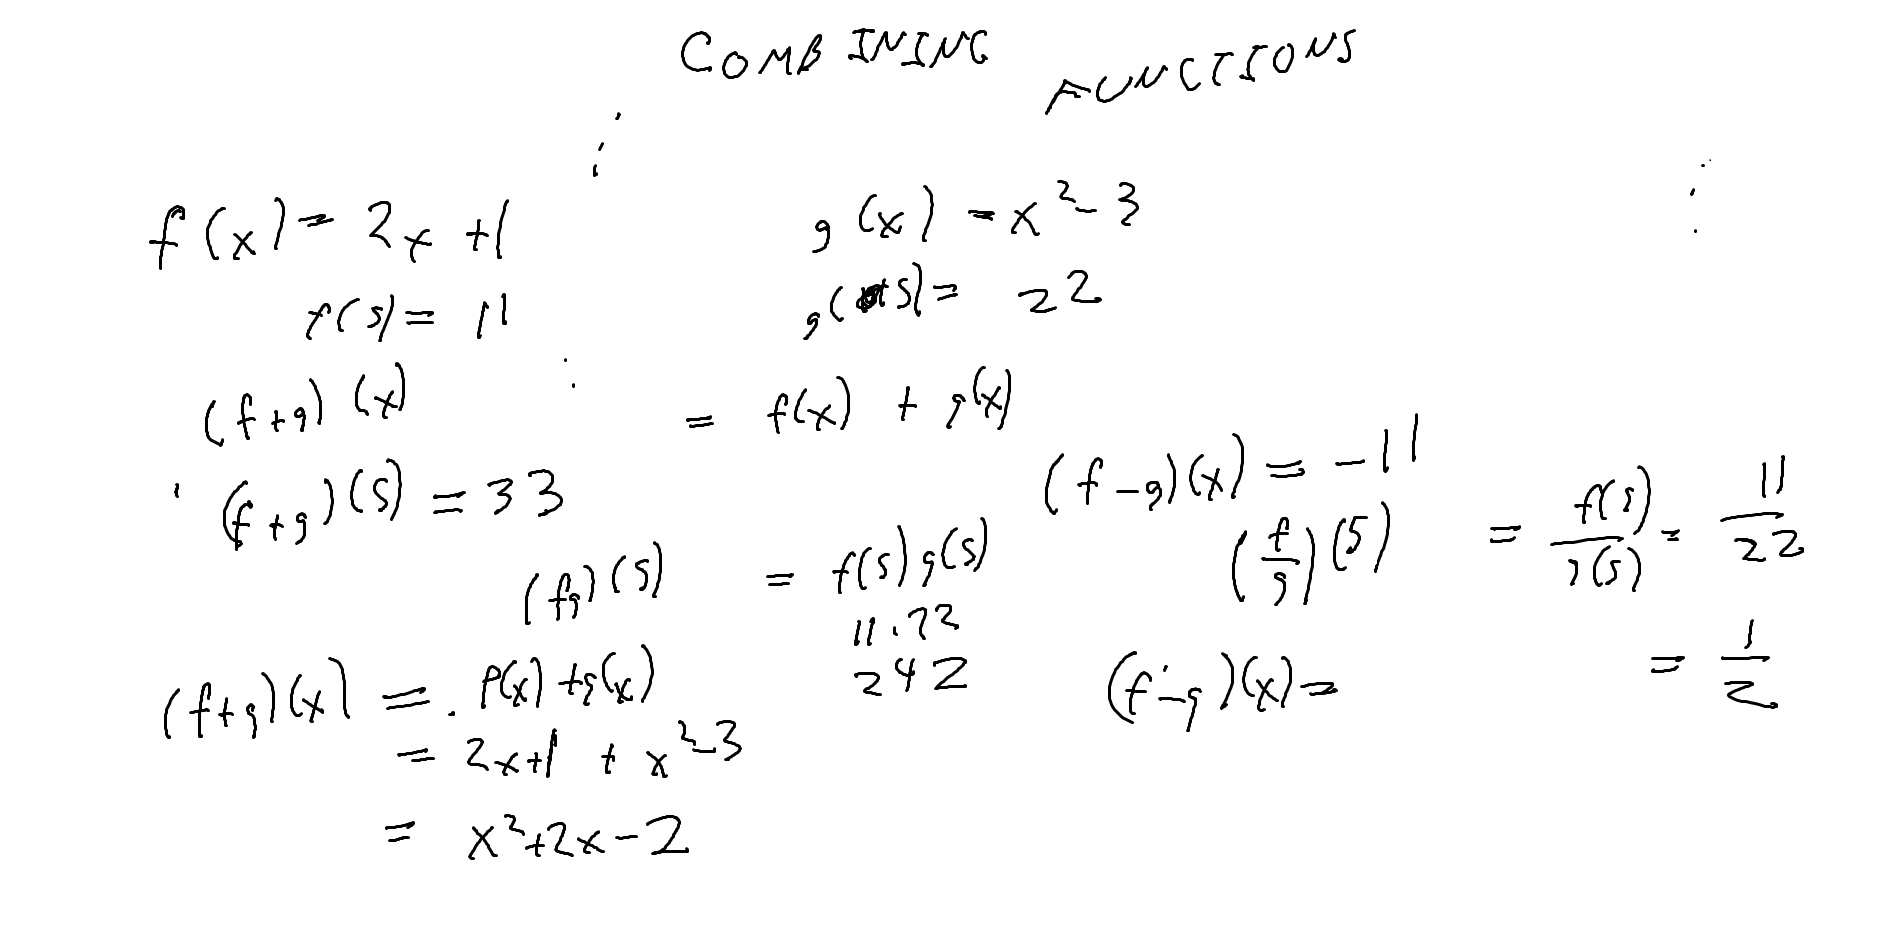 COMBINING FUNCTIONS
f(x) = 2x + 1
g(x) = x² - 3
f(5) = 11
g(5) = 22
(f+g)(x) = f(x) + g(x)
(f+g)(5) = 33
(f-g)(x) = -11
(fg)(5) = f(5)g(5)
11.22
242
(f/g)(5) = f(5)/g(5) = 11/22
= 1/2
(f+g)(x) = f(x) + g(x)
= 2x+1 + x²-3
= x²+2x-2
(f-g)(x) =